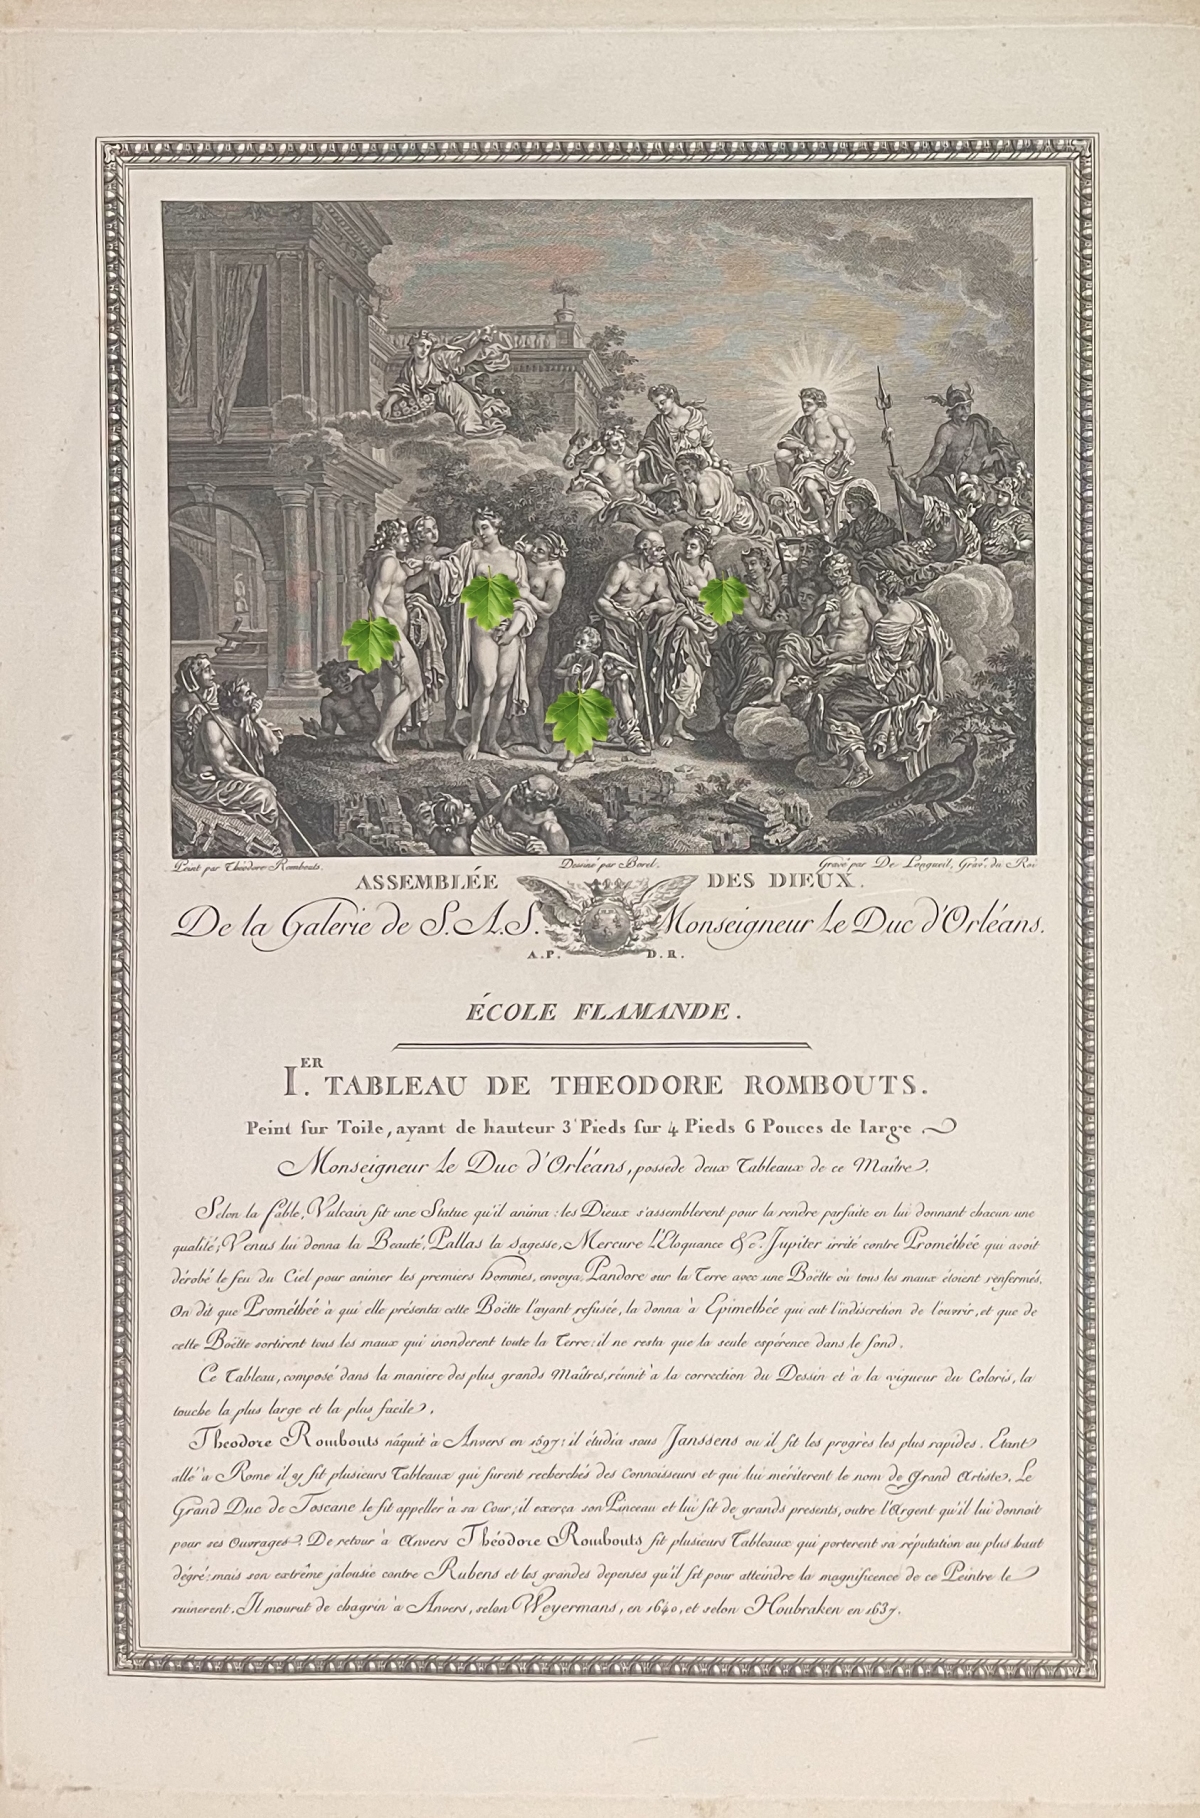 Peint par Théodore Rombouts. Dessiné par Borel. Gravé par De Longueil, Grav. du Roi
ASSEMBLÉE DES DIEUX.
De la Galerie de S.A.S. Monseigneur le Duc d'Orléans.
A.P. D.R.
ÉCOLE FLAMANDE.
I.ER TABLEAU DE THEODORE ROMBOUTS.
Peint sur Toile, ayant de hauteur 3 Pieds sur 4 Pieds 6 Pouces de large.
Monseigneur le Duc d'Orléans, possede deux Tableaux de ce Maître.
Selon la fable, Vulcain fit une Statue qu'il anima : les Dieux s'assemblerent pour la rendre parfaite en lui donnant chacun une
qualité; Venus lui donna la Beauté, Pallas la sagesse, Mercure l'Eloquance &c. Jupiter irrité contre Prométhée qui avoit
dérobé le feu du Ciel pour animer les premiers hommes, envoya Pandore sur la Terre avec une Boëtte où tous les maux étoient renfermés.
On dit que Prométhée à qui elle présenta cette Boëtte l'ayant refusée, la donna à Epimethée qui eut l'indiscretion de l'ouvrir, et que de
cette Boëtte sortirent tous les maux qui inonderent toute la Terre: il ne resta que la seule espérence dans le fond.
Ce Tableau, composé dans la maniere des plus grands Maîtres, réunit à la correction du Dessin et à la vigueur du Coloris, la
touche la plus large et la plus facile.
Theodore Rombouts nâquit à Anvers en 1597: il étudia sous Janssens ou il fit les progrès les plus rapides. Etant
allé à Rome il y fit plusieurs Tableaux qui furent recherchés des Connoisseurs et qui lui mériterent le nom de Grand Artiste. Le
Grand Duc de Toscane le fit appeller à sa Cour; il exerça son Pinceau et lui fit de grands presents, outre l'Argent qu'il lui donnoit
pour ses Ouvrages. De retour à Anvers Théodore Rombouts fit plusieurs Tableaux qui porterent sa réputation au plus haut
dégré; mais son extrême jalousie contre Rubens et les grandes depenses qu'il fit pour atteindre la magnificence de ce Peintre le
ruinerent. Il mourut de chagrin à Anvers, selon Weyermans, en 1640, et selon Houbraken en 1637.